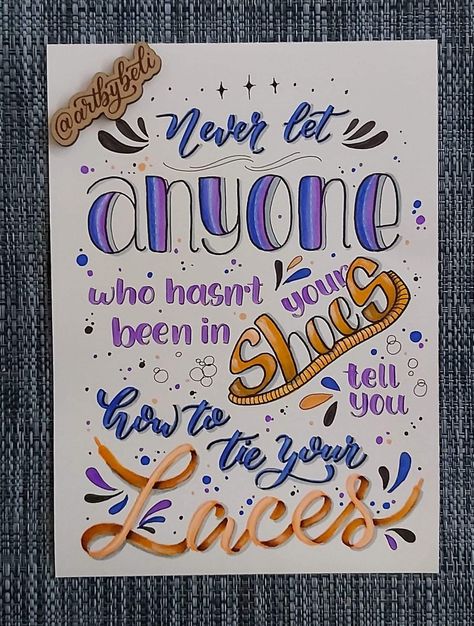 @artbybeli
Never let
anyone
who hasn't your
been in shoes
tell
you
how to
tie your
Laces